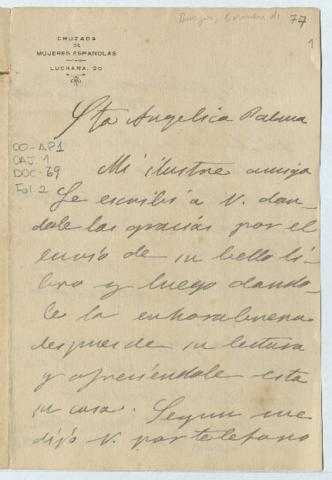 Burgos, Carmen de
77
1
CRUZADA
DE
MUJERES ESPAÑOLAS
LUCHANA, 20
Sta Angelica Palma
OO-AP1
CAJ. 1
DOC. 69
Fol. 2
Mi ilustre amiga
Le escribí a V. dan-
dole las gracias por el
envío de su bello li-
bro y luego dando-
le la enhorabuena
despues de su lectura
y ofreciéndole esta
su casa. Segun me
dijo V. por telefono